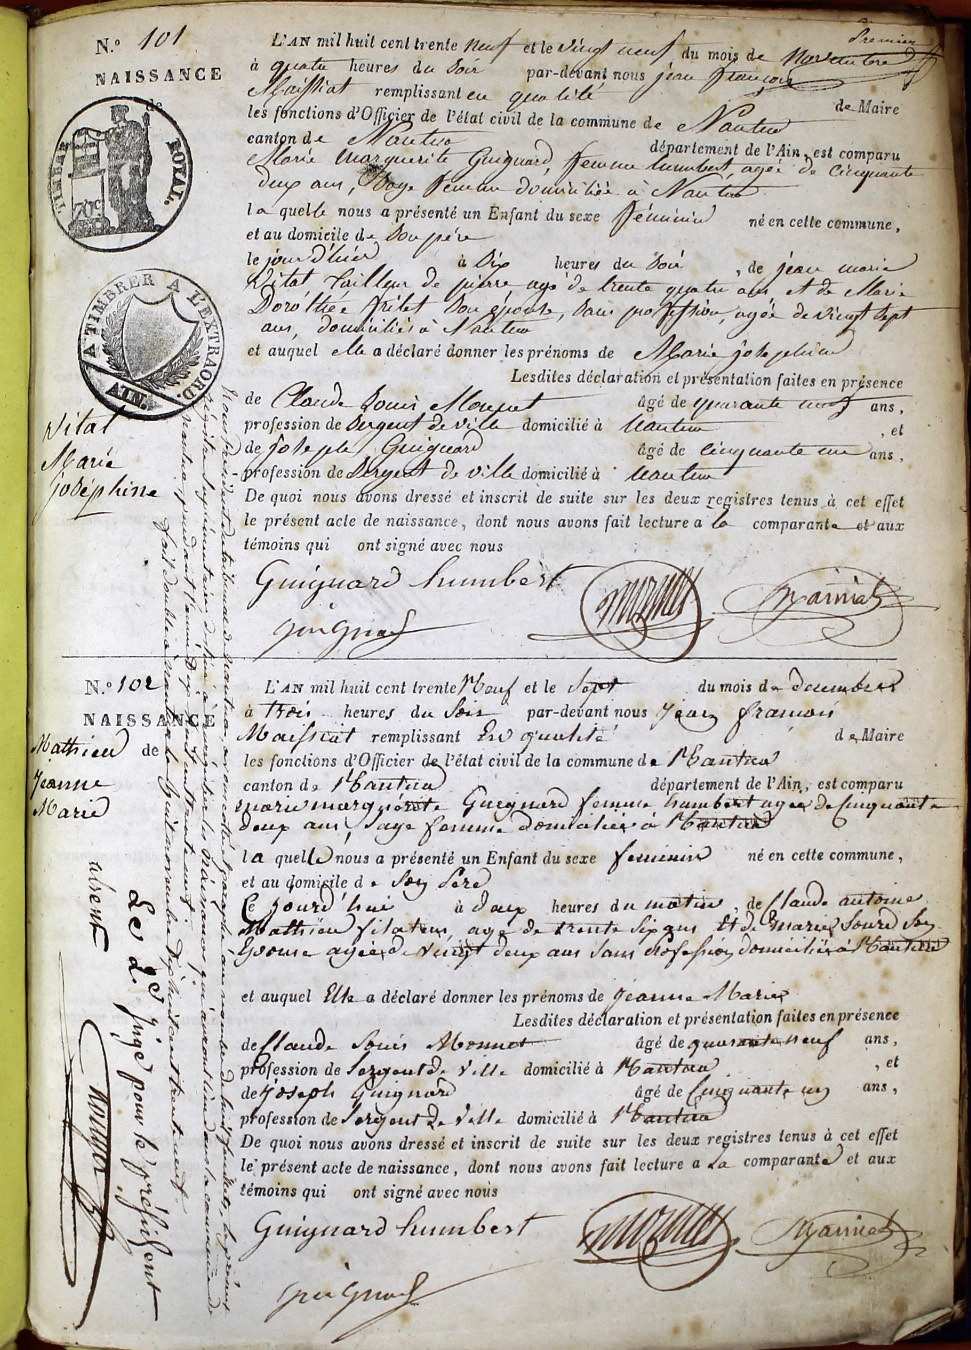 Premier
N.º 101
NAISSANCE
de
TIMBRE ROYAL.
70 C
A TIMBRER A L'EXTRAORD.
AIN.
Vital
Marie
joséphine
L'AN mil huit cent trente neuf et le vingt neuf du mois de Novembre
à quatre heures du soir par-devant nous jean françois
Maissiat remplissant en qualité de Maire
les fonctions d'Officier de l'état civil de la commune de Nantua
canton de Nantua département de l'Ain, est comparu
Marie Marguerite Guignard, femme humbert, agée de Cinquante
deux ans, Sage femme domiciliée à Nantua
la quelle nous a présenté un Enfant du sexe féminin né en cette commune,
et au domicile de Son père
le jour d'hier à Six heures du Soir, de jean marie
Vital tailleur de pierre agé de trente quatre ans et de Marie
Dorothée Son épouse, Sans profession, agée de Vingt Sept
ans, domiciliés à Nantua
et auquel elle a déclaré donner les prénoms de Marie josephine
Lesdites déclaration et présentation faites en présence
de Claude Louis Monnet âgé de quarante neuf ans,
profession de Sergent de ville domicilié à Nantua, et
de Joseph Guignard âgé de cinquante un ans,
profession de Sergent de ville domicilié à Nantua
De quoi nous avons dressé et inscrit de suite sur les deux registres tenus à cet effet
le présent acte de naissance, dont nous avons fait lecture a la comparante et aux
témoins qui ont signé avec nous
Guignard humbert
Monnet
Maissiat
guignard
N.º 102
NAISSANCE
de
Mathieu
Jeanne
Marie
L'AN mil huit cent trente Neuf et le Sept du mois de decembre
à trois heures du Soir par-devant nous Jean francois
Maissiat remplissant En qualité de Maire
les fonctions d'Officier de l'état civil de la commune de Nantua
canton de Nantua département de l'Ain, est comparu
marie marguerite Guignard femme humbert agée de Cinquante
deux ans, Sage femme domiciliée à Nantua
la quelle nous a présenté un Enfant du sexe feminin né en cette commune,
et au domicile de Son Pere
Ce jourd'hui à deux heures du matin, de Claude antoine
Mathieu filateur, agé de trente Six ans Et de Marie Sourd Son
Epouse agée de Vingt deux ans Sans Profession domiciliés à Nantua
et auquel Elle a déclaré donner les prénoms de Jeanne Marie
Lesdites déclaration et présentation faites en présence
de Claude Louis Monnet âgé de quarante neuf ans,
profession de Sergent de Ville domicilié à Nantua, et
de Joseph Guignard âgé de Cinquante un ans,
profession de Sergent de Ville domicilié à Nantua
De quoi nous avons dressé et inscrit de suite sur les deux registres tenus à cet effet
le présent acte de naissance, dont nous avons fait lecture a la comparante et aux
témoins qui ont signé avec nous
Guignard humbert
Monnet
Maissiat
guignard
registre supplémentaire destiné à inscrire les naissances qui auront lieu dans la commune de
Nantua pendant
fait double à Nantua le huit novembre dix huit cent trente neuf
Le d. juge pour le président
absent